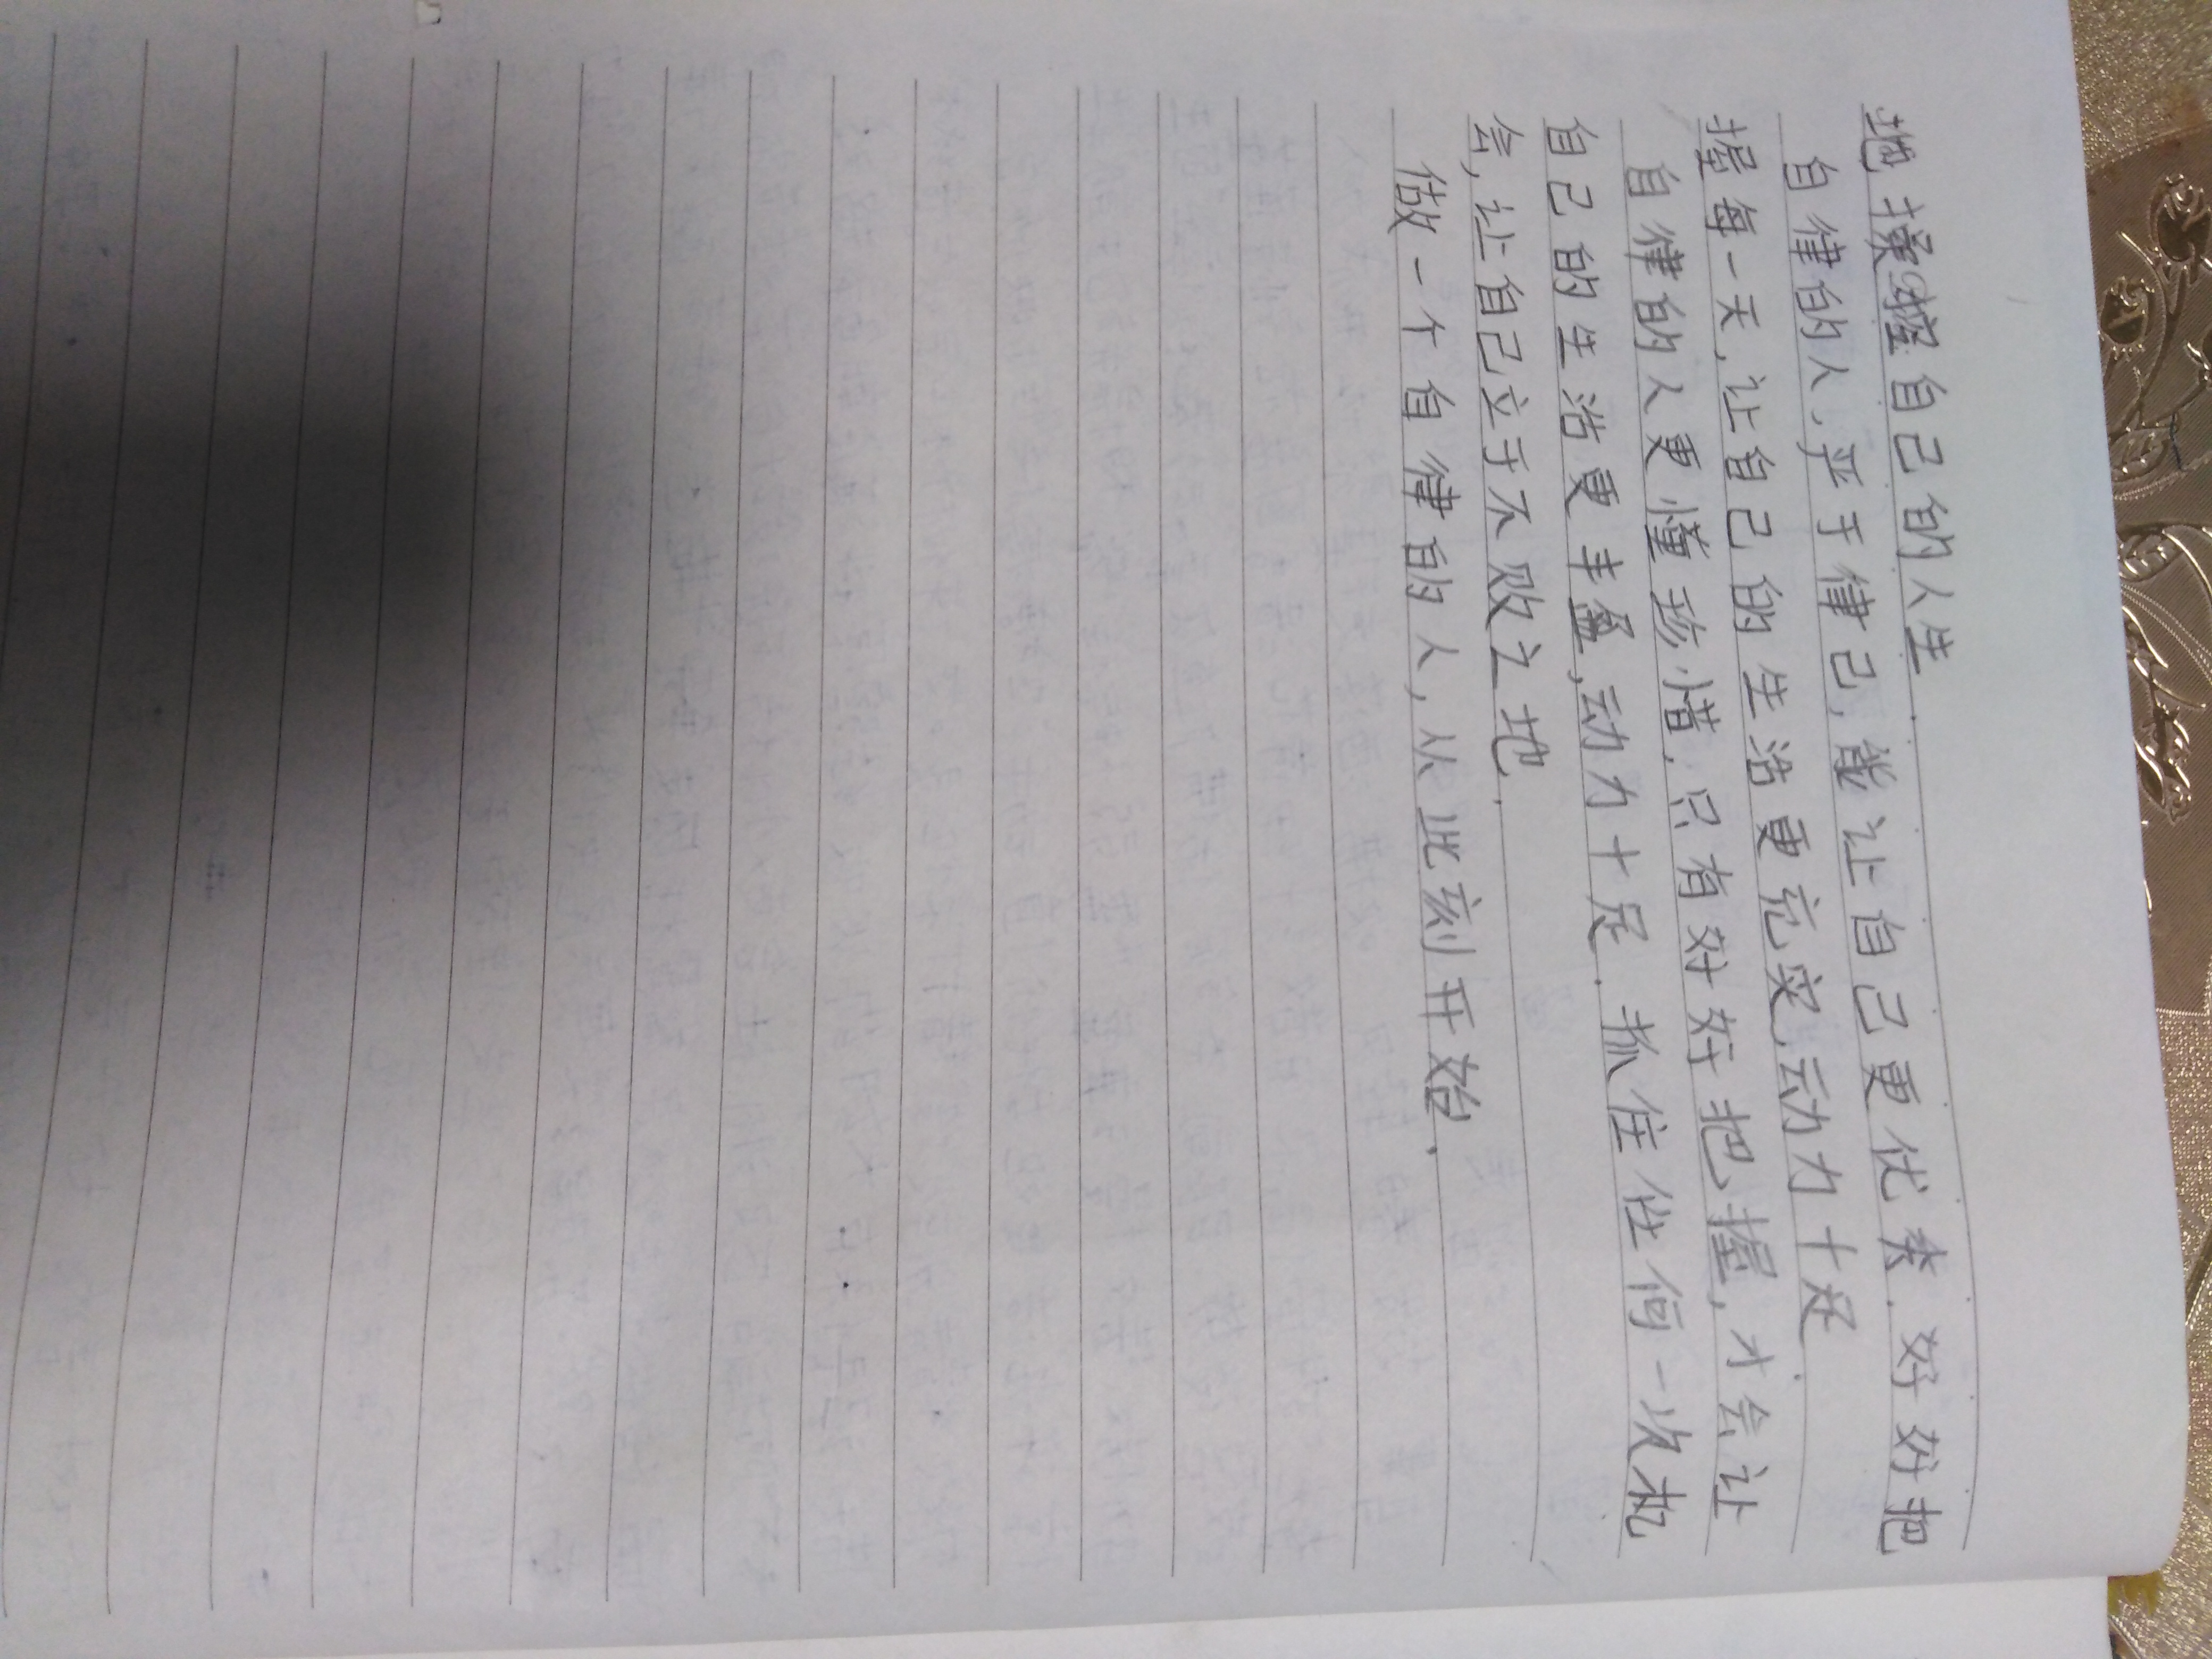 地掌握自己的人生.
自律的人,严于律己,能让自己更优秀.好好把
握每一天,让自己的生活更充实,动力十足.
自律的人更懂珍惜,只有好好把握,才会让
自己的生活更丰盈,动力十足.抓住任何一次机
会,让自己立于不败之地.
做一个自律的人,从此刻开始.